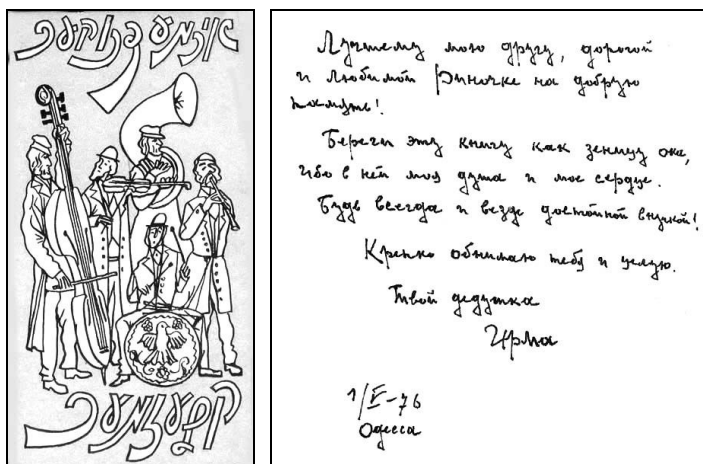 אירמע דרוקער
קלעזמער
Лучшему мою другу, дорогой
и любимой Риночке на добрую
память!
Береги эту книгу как зеницу ока,
ибо в ней моя душа и мое сердце.
Будь всегда и везде достойной внучкой!
Крепко обнимаю тебя и целую.
Твой дедушка
Ирма
1/V-76
Одесса